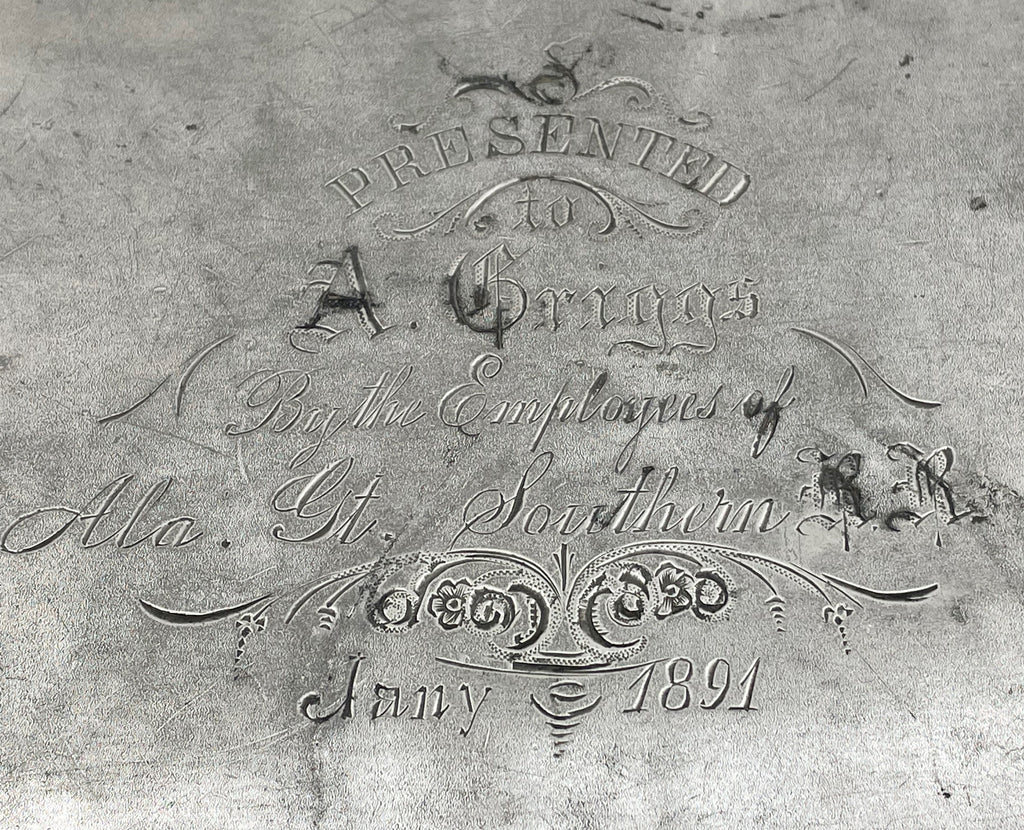 PRESENTED
to
A. Griggs
By the Employees of
Ala. Gt. Southern R.R.
Jany 1891